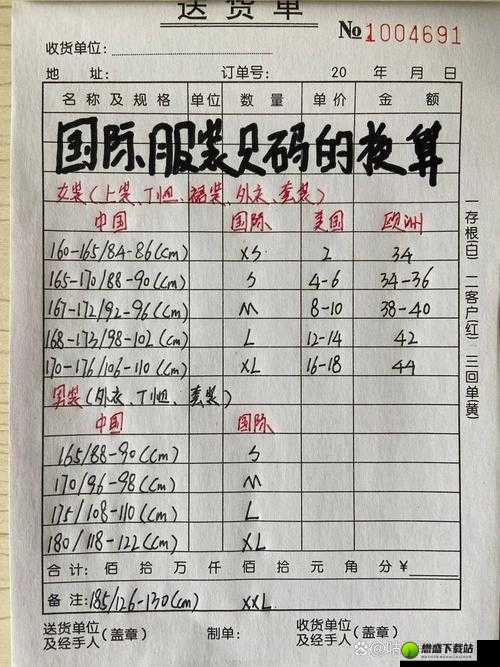 送货单
№1004691
收货单位:
地 址: 订单号: 20 年 月 日
名称及规格 单位 数量 单价 金额
国际服装尺码的换算
女装(上装、T恤、裙装、外衣、套装)
中国 国际 美国 欧洲
160-165/84-86(cm) XS 2 34
165-170/88-90(cm) S 4-6 34-36
167-172/92-96(cm) M 8-10 38-40
168-173/98-102(cm) L 12-14 42
170-176/106-110(cm) XL 16-18 44
男装(外衣、T恤、套装)
中国 国际
165/88-90(cm) S
170/96-98(cm) M
175/108-110(cm) L
180/118-122(cm) XL
合计: 佰 拾 万 仟 佰 拾 元 角 分 ¥
备注: 185/126-130(cm) XXL
送货单位及经手人(盖章) 制单: 收货单位及经手人(盖章)
一存根(白) 二客户(红) 三回单(黄)
下载站